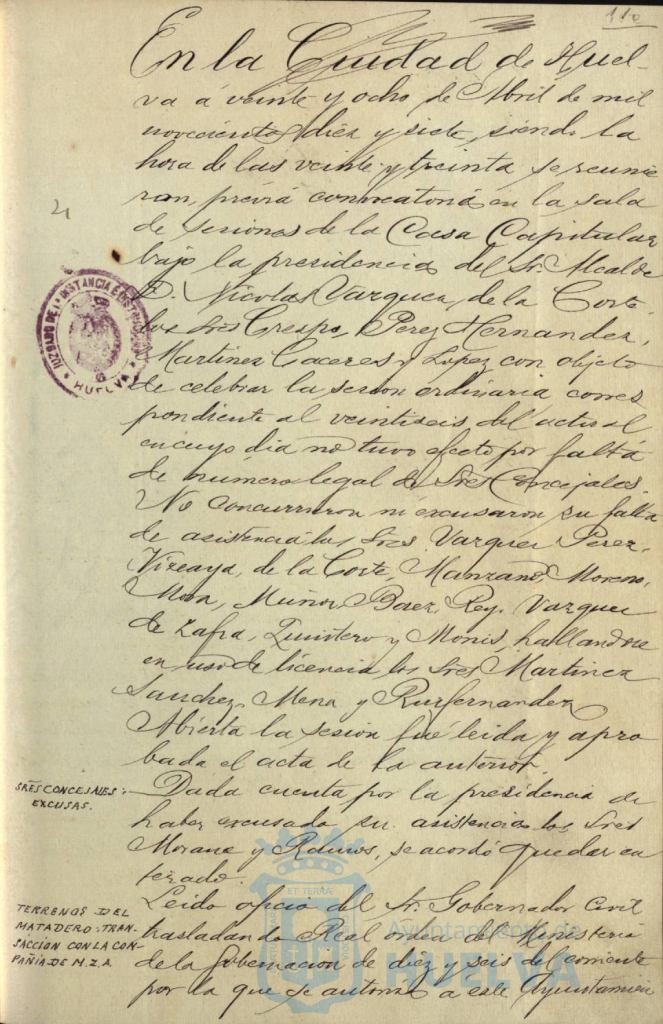 110
En la Ciudad de Huel-
va á veinte y ocho de Abril de mil
novecientos diez y siete, siendo la
hora de las veinte y treinta se reunie
ron, previa convocatoria en la sala
de sesiones de la Casa Capitular
bajo la presidencia del Sr. Alcalde
D. Nicolas Vazquez de la Corte
los Sres Crespo, Perez Hernandez,
Martinez Caceres y Lopez con objeto
de celebrar la sesion ordinaria corres
pondiente al veintiseis del actual
en cuyo dia no tuvo efecto por falta
de número legal de Sres Concejales.
No concurrieron ni excusaron su falta
de asistencia los Sres Vazquez Perez,
Vizcaya, de la Corte, Manzano, Moreno,
Mora, Muñoz, Baez, Rey, Vazquez
de Zafra, Quintero y Monis, hallandose
en uso de licencia los Sres Martinez
Sanchez, Mena y Ruifernandez
Abierta la sesion fué leida y apro
bada el acta de la anterior.
SRES CONCEJALES:
EXCUSAS.
Dada cuenta por la presidencia de
haber excusado su asistencia los Sres
y
se acordó quedar en
terado.
TERRENOS DEL
MATADERO: TRAN-
SACCION CON LA COM-
PAÑIA DE M.Z.A.
Leido oficio del Sr. Gobernador Civil
trasladando Real orden del Ministerio
de la Gobernacion de diez y seis del corriente
por la que se autoriza a este Ayuntamien
JUZGADO DE 1ª INSTANCIA E INSTRUCCION
HUELVA
Ayuntamiento de
HUELVA